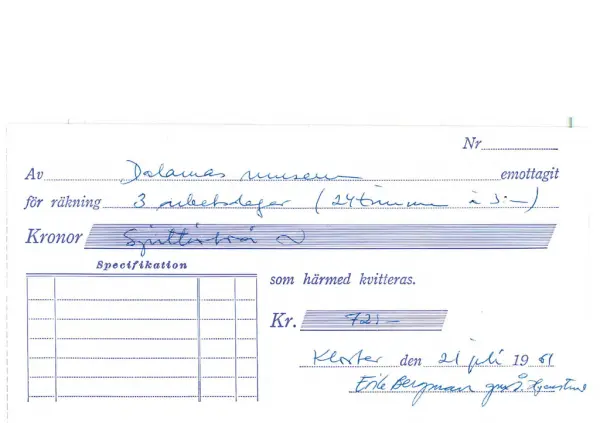 Nr
Av Dalarnas museum emottagit
för räkning 3 arbetsdagar (24 timmar à 3:-)
Kronor Sjuttiotvå
Specifikation
som härmed kvitteras.
Kr. 72:-
Kloster den 21 juli 1961
Erik Bergman